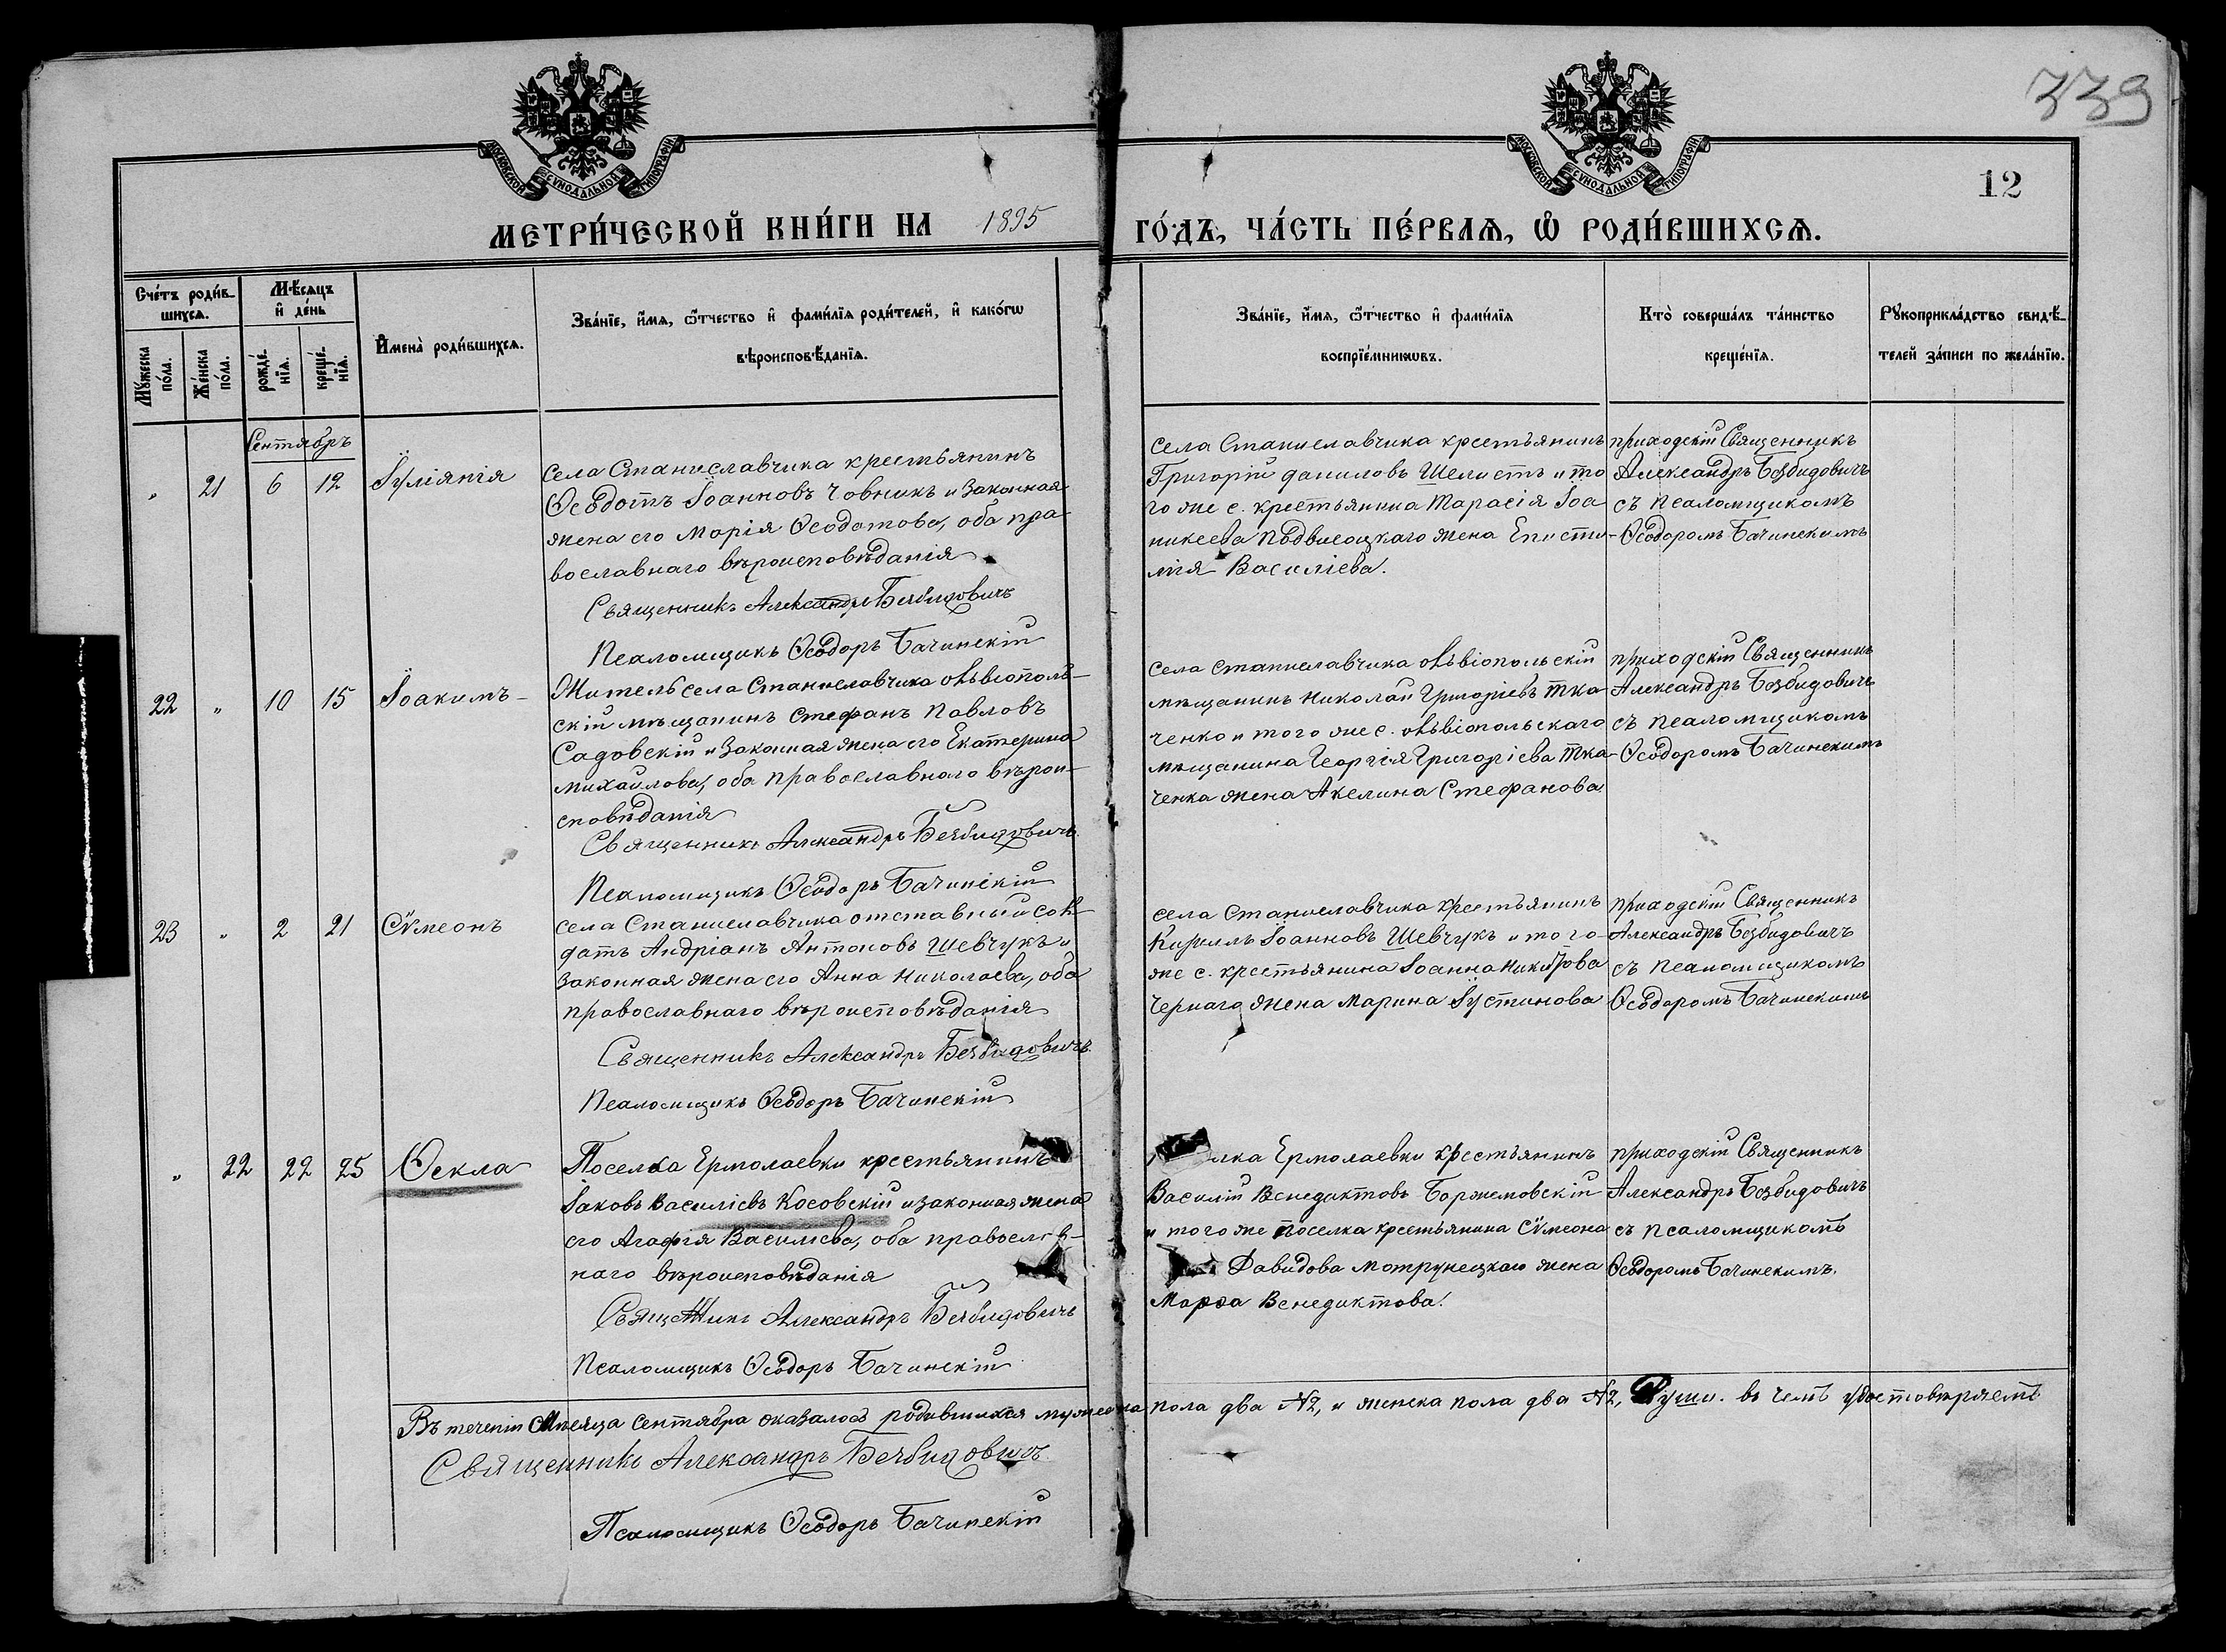 339
12
МОСКОВСКОЙ СѴНОДАЛЬНОЙ ТИПОГРАФІИ
МОСКОВСКОЙ СѴНОДАЛЬНОЙ ТИПОГРАФІИ
МЕТРИ́ЧЕСКОЙ КНИ́ГИ НА 1895 ГО́ДЪ, ЧА́СТЬ ПЕ́РВАѦ, Ѽ РОДИ́ВШИХСѦ.
Сче́тъ роди́в-
шихсѧ.
Мѣ́сѧцъ
и҆ де́нь
Мꙋ́жеска
по́ла.
Же́нска
по́ла.
рожде́-
нїѧ.
креще́-
нїѧ.
И҆мена̀ роди́вшихсѧ.
Зва́нїе, и҆́мѧ, ѻ҆́тчество и҆ фами́лїѧ роди́телей, и҆ како́гѡ
вѣроисповѣ́данїѧ.
Зва́нїе, и҆́мѧ, ѻ҆́тчество и҆ фами́лїѧ
воспрїе́мникѡвъ.
Кто̀ соверша́лъ та́инство
креще́нїѧ.
Рꙋкоприкла́дство свидѣ́-
телей за́писи по жела́нїю.
Сентябръ
" 21 6 12 Іуліянія
села Станиславчика крестьянинъ
Ѳеодотъ Іоанновъ Човникъ и законная
жена его Марія Ѳеодотова, оба пра-
вославнаго вѣроисповѣданія
Священникъ Александръ Безбидовичъ
Псаломщикъ Ѳеодоръ Бачинскій
села Станиславчика крестьянинъ
Григорій Даниловъ Шелистъ и то
го же с. крестьянина Тарасія Іоа
никеева Подвисоцкаго жена Епісти-
мія Василіева.
приходскій Священникъ
Александръ Безбидовичъ
съ псаломщикомъ
Ѳеодоромъ Бачинскимъ
22 " 10 15 Іоакимъ
Житель села Станиславчика ольвіополь-
скій мѣщанинъ Стефанъ Павловъ
Садовскій и законная жена его Екатерина
Михайлова, оба православнаго вѣрои-
сповѣданія
Священникъ Александръ Безбидовичъ
Псаломщикъ Ѳеодоръ Бачинскій
села Станиславчика ольвіопольскій
мѣщанинъ Николай Григоріевъ Тка
ченко и того же с. ольвіопольскаго
мѣщанина Георгія Григоріева Тка-
ченка жена Акелина Стефанова
приходскій Священникъ
Александръ Безбидовичъ
съ псаломщикомъ
Ѳеодоромъ Бачинскимъ
23 " 2 21 Сѵмеонъ
села Станиславчика отставный сол-
датъ Андріанъ Антоновъ Шевчукъ и
законная жена его Анна Николаева, оба
православнаго вѣроисповѣданія
Священникъ Александръ Безбидовичъ
Псаломщикъ Ѳеодоръ Бачинскій
села Станиславчика крестьянинъ
Кириллъ Іоанновъ Шевчукъ и того
же с. крестьянина Іоанна
Чернаго жена Марина Іустинова
приходскій Священникъ
Александръ Безбидовичъ
съ псаломщикомъ
Ѳеодоромъ Бачинскимъ
" 22 22 25 Ѳекла
Поселка Ермолаевки крестьянинъ
Іаковъ Василіевъ Косовскій и законная жена
его Агафія Василіева, оба православ-
наго вѣроисповѣданія
Священникъ Александръ Безбидовичъ
Псаломщикъ Ѳеодоръ Бачинскій
лка Ермолаевки крестьянинъ
Василій Венедиктовъ Боржемовскій
и того же поселка крестьянина Сѵмеона
Давидова Мотрунецкаго жена
Марѳа Венедиктова.
приходскій Священникъ
Александръ Безбидовичъ
съ псаломщикомъ
Ѳеодоромъ Бачинскимъ.
Въ теченіи Мѣсяца Сентября оказалось родившихся мужеска пола два №2, и женска пола два №2, Души. въ чемъ удостовѣряетъ
Священникъ Александръ Безбидовичъ
Псаломщикъ Ѳеодоръ Бачинскій